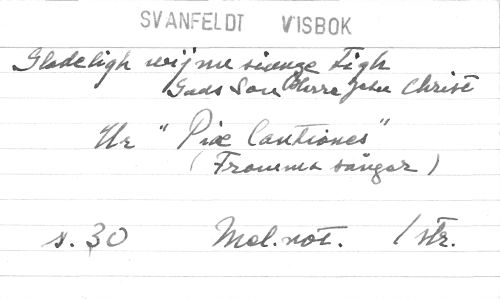 SVANFELDT VISBOK
Gladeligh wij nu siunge Tigh
Guds Son Herre Jesu Christ
Ur "Piæ Cantiones"
(Fromma sånger)
s. 30 Mel.not. 1 str.